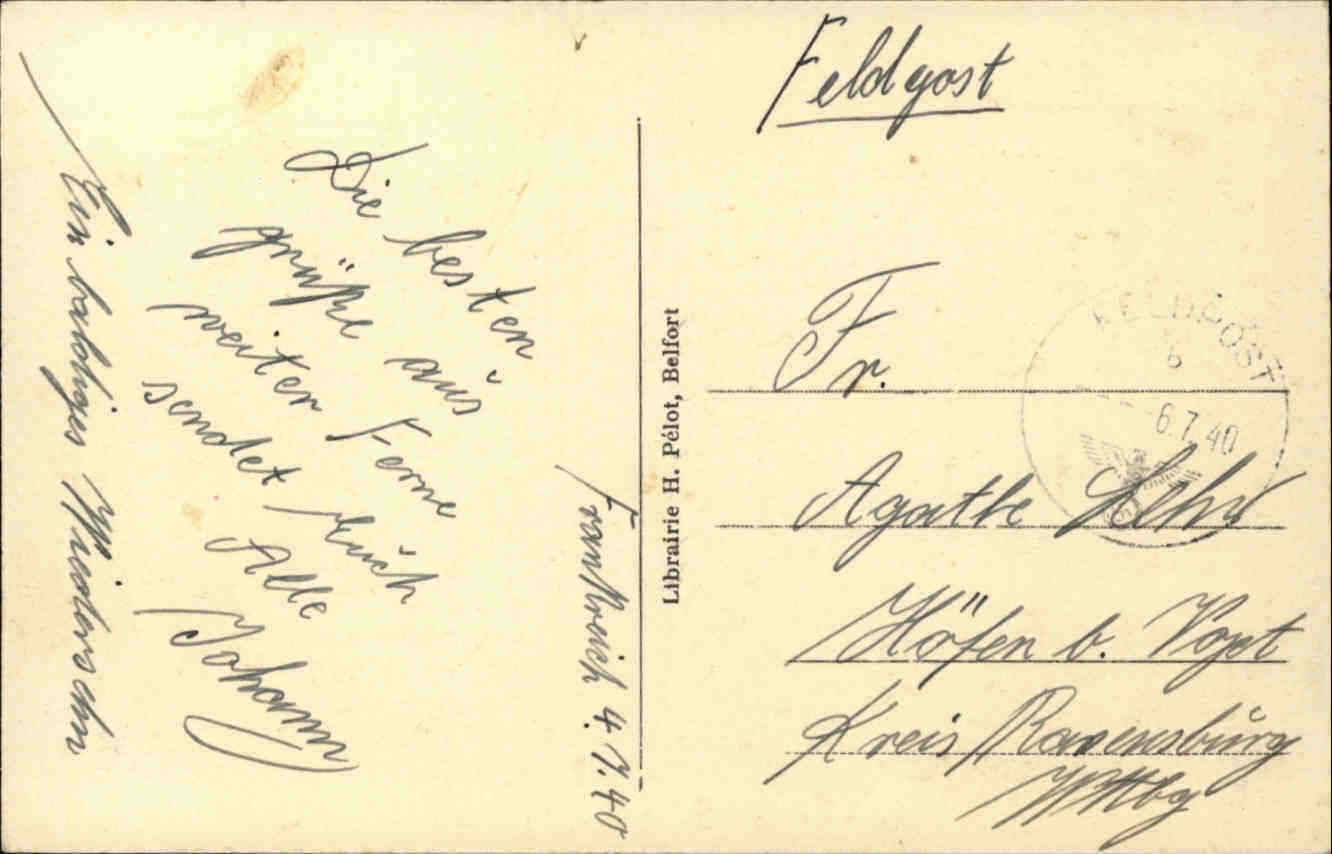 Feldpost
Frankreich 4.7.40
Die besten
grüße aus
weiter Ferne
sendet Euch
Alle
Johann
Ein baldiges Wiedersehn
Librairie H. Pélot, Belfort
FELDPOST
b
6.7.40
Fr.
Agathe
Höfen b. Vogt
Kreis Ravensburg
Wttbg